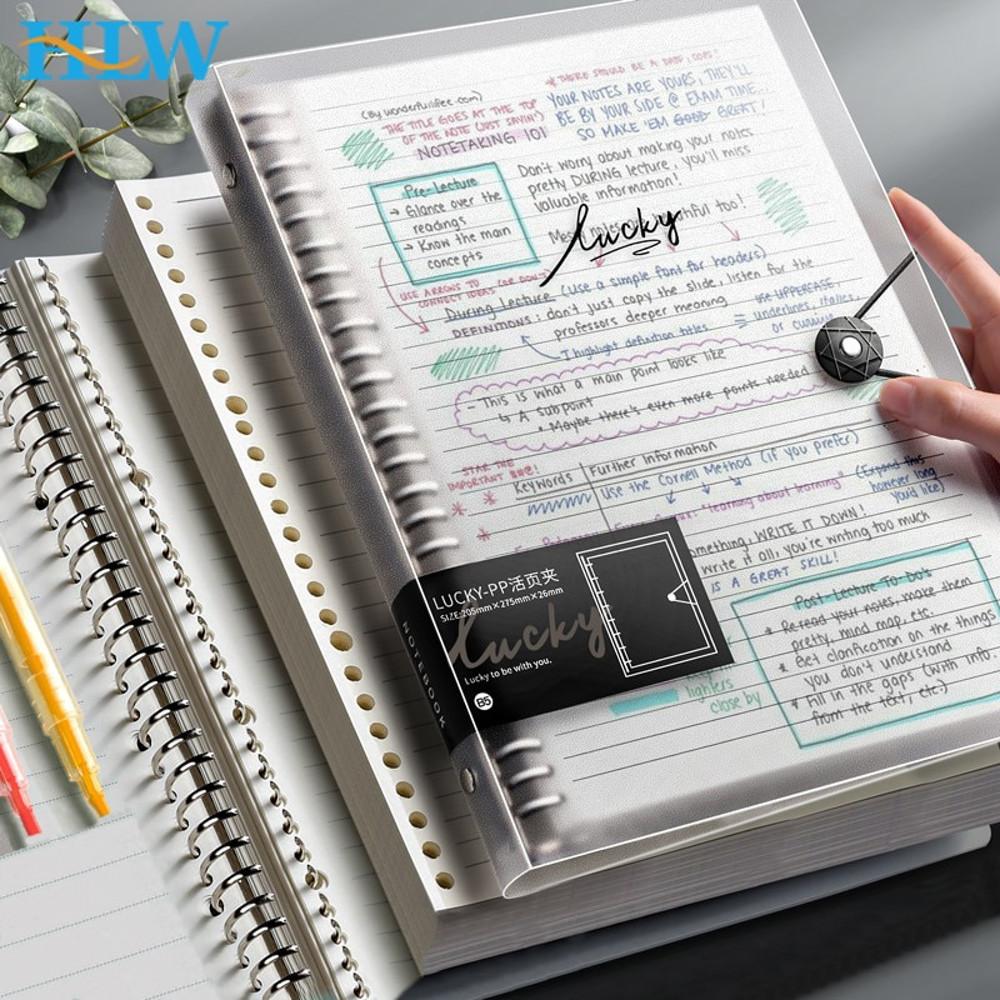 HLW
(By wonderfurlifee.com)
THE TITLE GOES AT THE TOP
OF THE NOTE (JUST SAYIN')
NOTETAKING 101
* THERE SHOULD BE A DATE, OOPS!
YOUR NOTES ARE YOURS, THEY'LL
BE BY YOUR SIDE @ EXAM TIME...
SO MAKE 'EM GOOD GREAT!
Pre-Lecture
→ Glance over the
readings
→ Know the main
concepts
Don't worry about making your notes
pretty DURING lecture, you'll miss
valuable information!
too!
Lucky
USE ARROWS TO
CONNECT IDEAS, (OR DON'T)
During Lecture (use a simple font for headers)
DEFINITIONS: don't just copy the slide, listen for the
professors deeper meaning
I highlight definition titles
USE UPPERCASE,
underlines, italics,
or cursive
- This is what a main point looks like
↳ A subpoint
* Maybe there's even more points needed
STAR THE
IMPORTANT
Keywords
Further Information
Use the Cornell Method (if you prefer)
"learning about learning"
(Expand this
however long
you'd like)
something, WRITE IT DOWN!
write it all, you're writing too much
IS A GREAT SKILL!
LUCKY-PP活页夹
SIZE:205mm×275mm×26mm
Lucky
Lucky to be with you.
B5
NOTEBOOK
lighters
close by
Post-Lecture To-Do's
* Re-read your notes, make them
pretty, mind map, etc.
* Get clarification on the things
you don't understand
* Fill in the gaps (with info.
from the text, etc.)